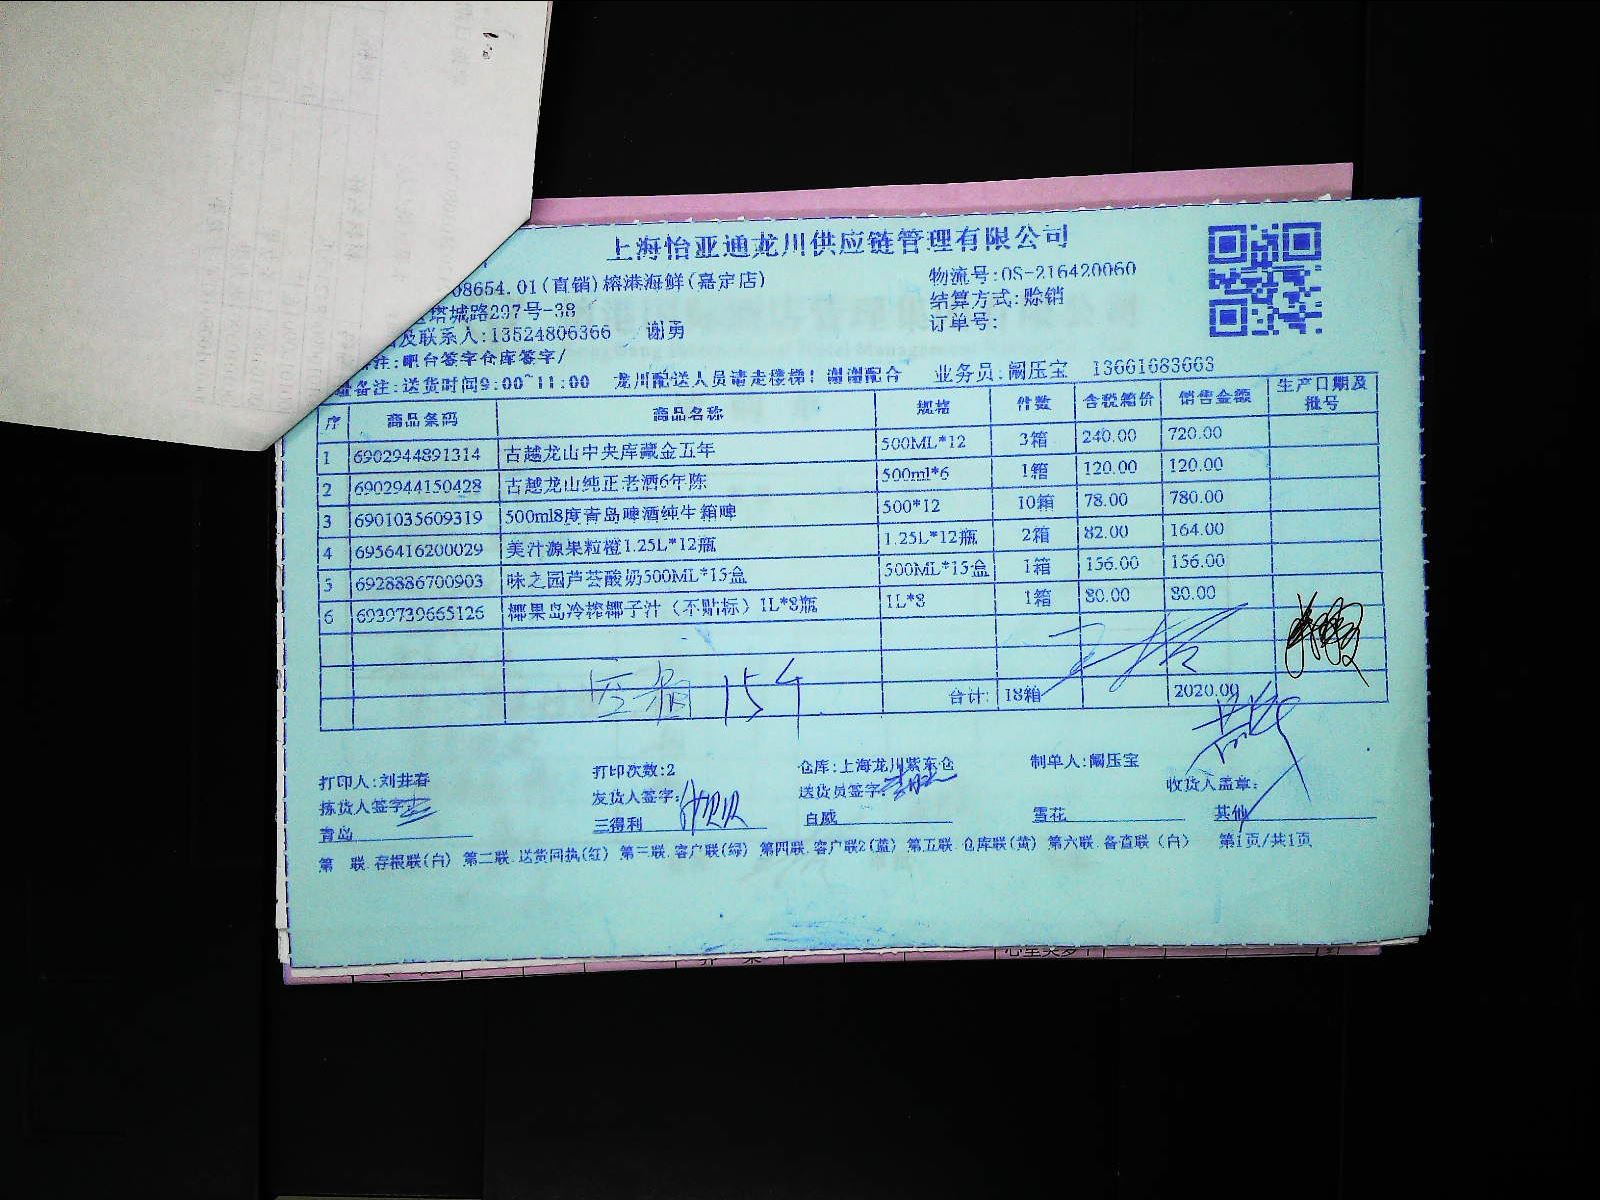 上海怡亚通龙川供应链管理有限公司
08654.01(直销)榕港海鲜(嘉定店)
物流号:OS-216420060
塔城路297号-38
结算方式:赊销
及联系人:13524806366 谢勇
订单号:
注:吧台签字仓库签字/
备注:送货时间9:00~11:00 龙川配送人员请走楼梯!谢谢配合 业务员:阚压宝 13661683663
序 商品条码 商品名称 规格 件数 含税箱价 销售金额 生产日期及批号
1 6902944891314 古越龙山中央库藏金五年 500ML*12 3箱 240.00 720.00
2 6902944150428 古越龙山纯正老酒6年陈 500ml*6 1箱 120.00 120.00
3 6901035609319 500ml8度青岛啤酒纯生箱啤 500*12 10箱 78.00 780.00
4 6956416200029 美汁源果粒橙1.25L*12瓶 1.25L*12瓶 2箱 82.00 164.00
5 6928886700903 味之园芦荟酸奶500ML*15盒 500ML*15盒 1箱 156.00 156.00
6 6939739665126 椰果岛冷榨椰子汁(不贴标)1L*8瓶 1L*8 1箱 80.00 80.00
合计: 18箱 2020.00
打印人:刘井春 打印次数:2 仓库:上海龙川紫东仓 制单人:阚压宝 收货人盖章:
拣货人签字: 发货人签字: 送货员签字:
青岛 三得利 百威 雪花 其他
第一联.存根联(白) 第二联.送货回执(红) 第三联.客户联(绿) 第四联.客户联2(蓝) 第五联.仓库联(黄) 第六联.备查联(白) 第1页/共1页